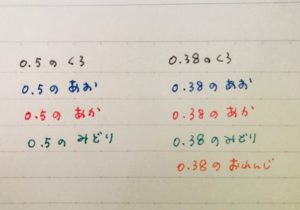 0.5の くろ
0.5の あお
0.5の あか
0.5の みどり
0.38の くろ
0.38の あお
0.38の あか
0.38の みどり
0.38の おれんじ